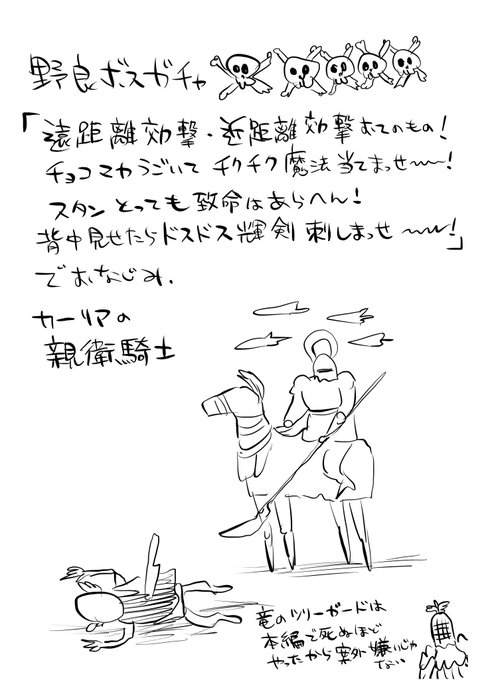 野良ボスガチャ
「遠距離効撃・近距離効撃おてのもの！
チョコマカうごいて チクチク魔法当てまっせ〜〜！
スタン とっても 致命はあらへん！
背中見せたらドスドス輝剣 刺しまっせ〜〜！」
でおなじみ、
カーリアの
親衛騎士
竜のツリーガードは
本編で死ぬほど
やったから案外嫌いじゃ
ない